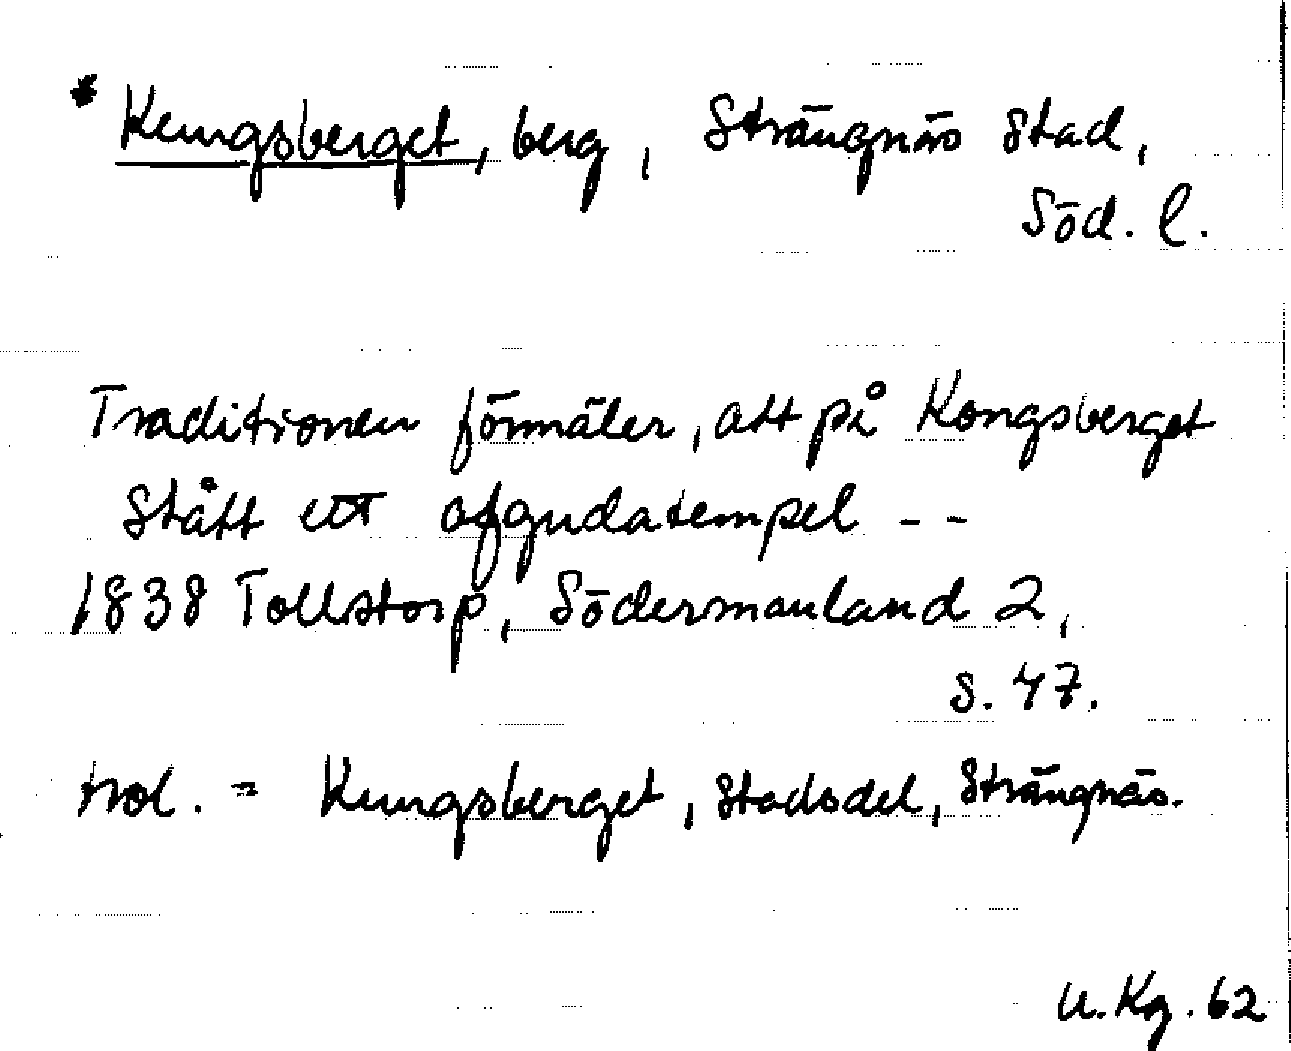 * Kungsberget, berg, Strängnäs stad,
Söd. l.
Traditionen förmäler, att på Kongsberget
stått ett afgudatempel --
1838 Tollstorp, Södermanland 2,
s. 47.
trol. = Kungsberget, stadsdel, Strängnäs.
U.Kg. 62